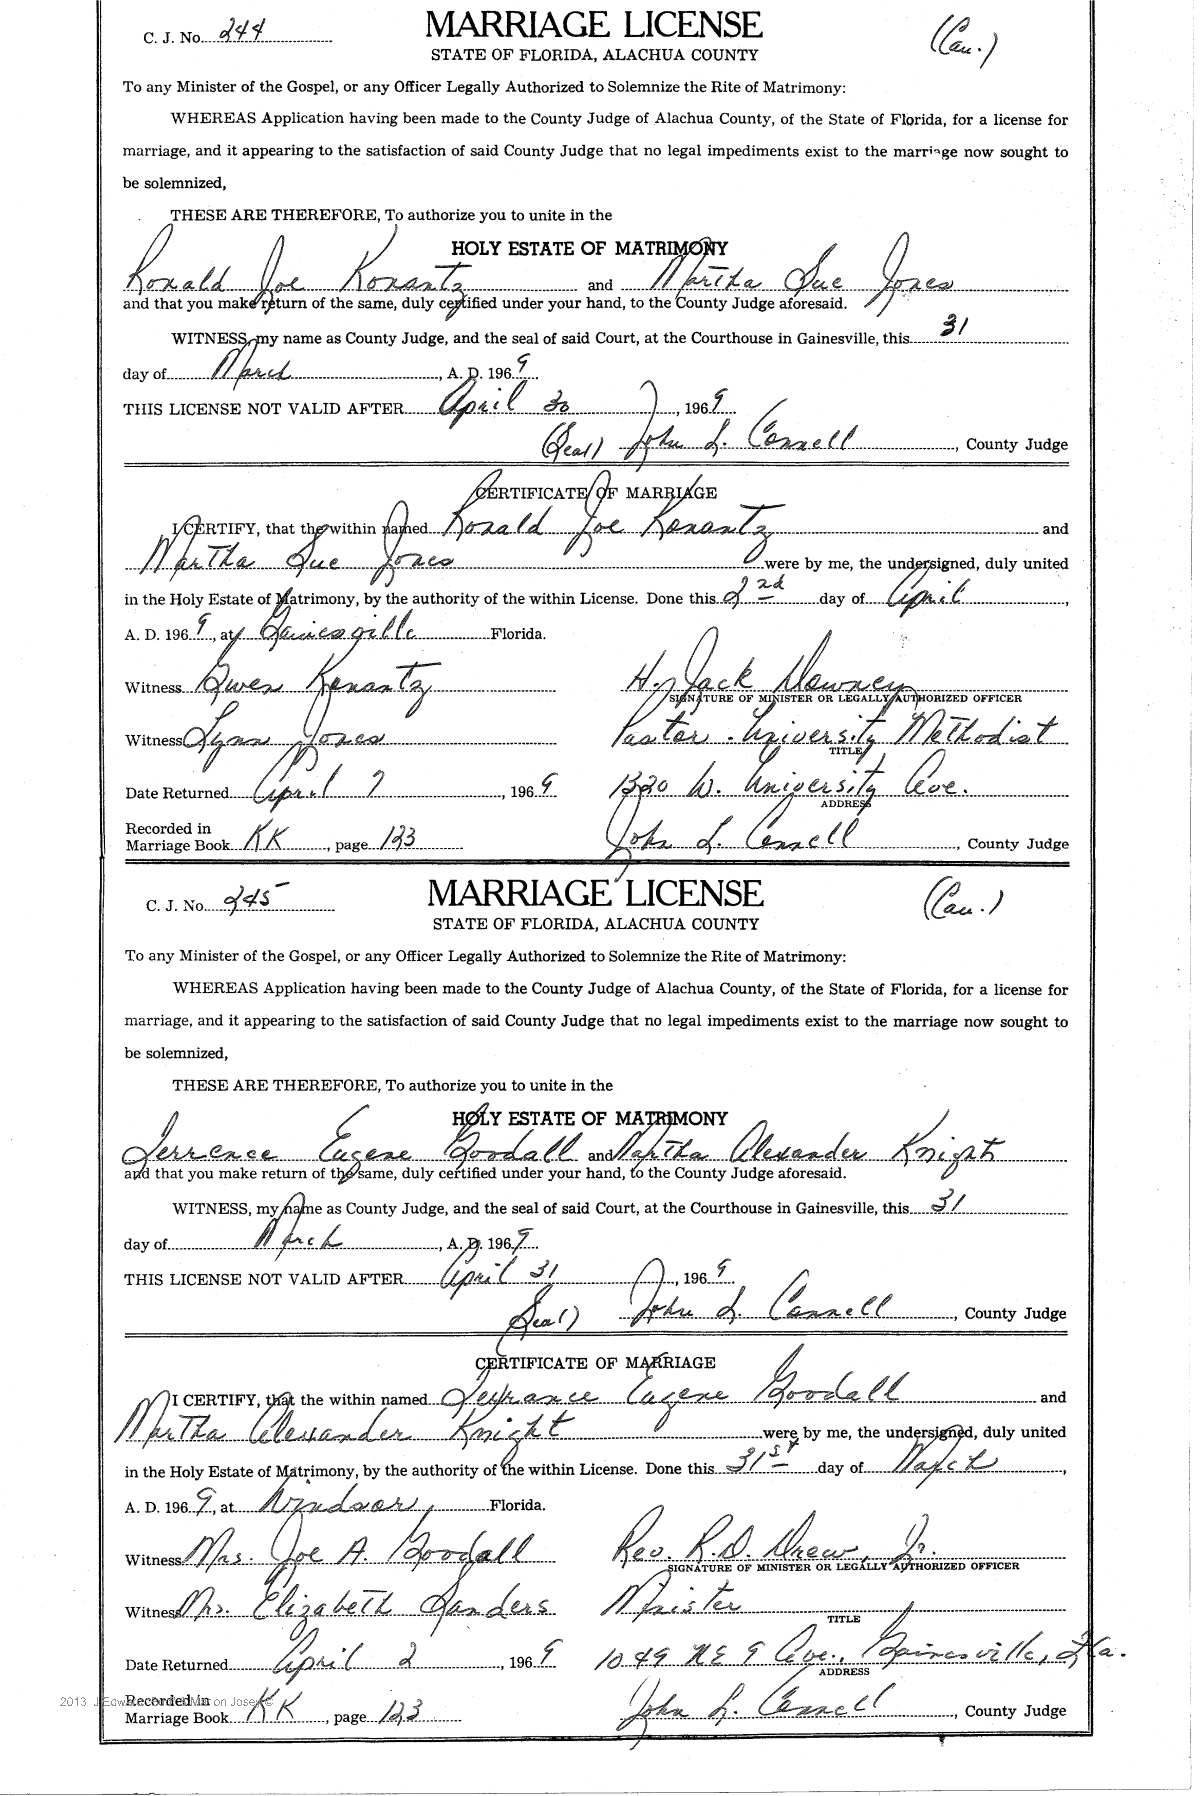 C. J. No. 244
MARRIAGE LICENSE
(Cau.)
STATE OF FLORIDA, ALACHUA COUNTY
To any Minister of the Gospel, or any Officer Legally Authorized to Solemnize the Rite of Matrimony:
WHEREAS Application having been made to the County Judge of Alachua County, of the State of Florida, for a license for
marriage, and it appearing to the satisfaction of said County Judge that no legal impediments exist to the marriage now sought to
be solemnized,
THESE ARE THEREFORE, To authorize you to unite in the
HOLY ESTATE OF MATRIMONY
Ronald Joe Konantz and Martha Sue Jones
and that you make return of the same, duly certified under your hand, to the County Judge aforesaid.
WITNESS, my name as County Judge, and the seal of said Court, at the Courthouse in Gainesville, this 31
day of March, A. D. 1969
THIS LICENSE NOT VALID AFTER April 30, 1969
(Seal) John L. Connell, County Judge
CERTIFICATE OF MARRIAGE
I CERTIFY, that the within named Ronald Joe Konantz and
Martha Sue Jones were by me, the undersigned, duly united
in the Holy Estate of Matrimony, by the authority of the within License. Done this 2nd day of April,
A. D. 1969, at Gainesville Florida.
Witness Gwen Konantz H. Jack Downey
SIGNATURE OF MINISTER OR LEGALLY AUTHORIZED OFFICER
Witness Lynn Jones Pastor - University Methodist
TITLE
Date Returned April 7, 1969 1320 W. University Ave.
ADDRESS
Recorded in
Marriage Book KK, page 123 John L. Connell, County Judge
C. J. No. 245
MARRIAGE LICENSE
(Cau.)
STATE OF FLORIDA, ALACHUA COUNTY
To any Minister of the Gospel, or any Officer Legally Authorized to Solemnize the Rite of Matrimony:
WHEREAS Application having been made to the County Judge of Alachua County, of the State of Florida, for a license for
marriage, and it appearing to the satisfaction of said County Judge that no legal impediments exist to the marriage now sought to
be solemnized,
THESE ARE THEREFORE, To authorize you to unite in the
HOLY ESTATE OF MATRIMONY
Terrence Eugene Goodall and Martha Alexander Knight
and that you make return of the same, duly certified under your hand, to the County Judge aforesaid.
WITNESS, my name as County Judge, and the seal of said Court, at the Courthouse in Gainesville, this 31
day of March, A. D. 1969
THIS LICENSE NOT VALID AFTER April 31, 1969
(Seal) John L. Connell, County Judge
CERTIFICATE OF MARRIAGE
I CERTIFY, that the within named Terrance Eugene Goodall and
Martha Alexander Knight were by me, the undersigned, duly united
in the Holy Estate of Matrimony, by the authority of the within License. Done this 31st day of March,
A. D. 1969, at Windsor, Florida.
Witness Mrs. Joe A. Goodall Rev. R. D. Drew, Jr.
SIGNATURE OF MINISTER OR LEGALLY AUTHORIZED OFFICER
Witness Mrs. Elizabeth Sanders Minister
TITLE
Date Returned April 2, 1969 1049 NE 9 Ave., Gainesville, Fla.
ADDRESS
2013
Recorded in
Marriage Book KK, page 123 John L. Connell, County Judge